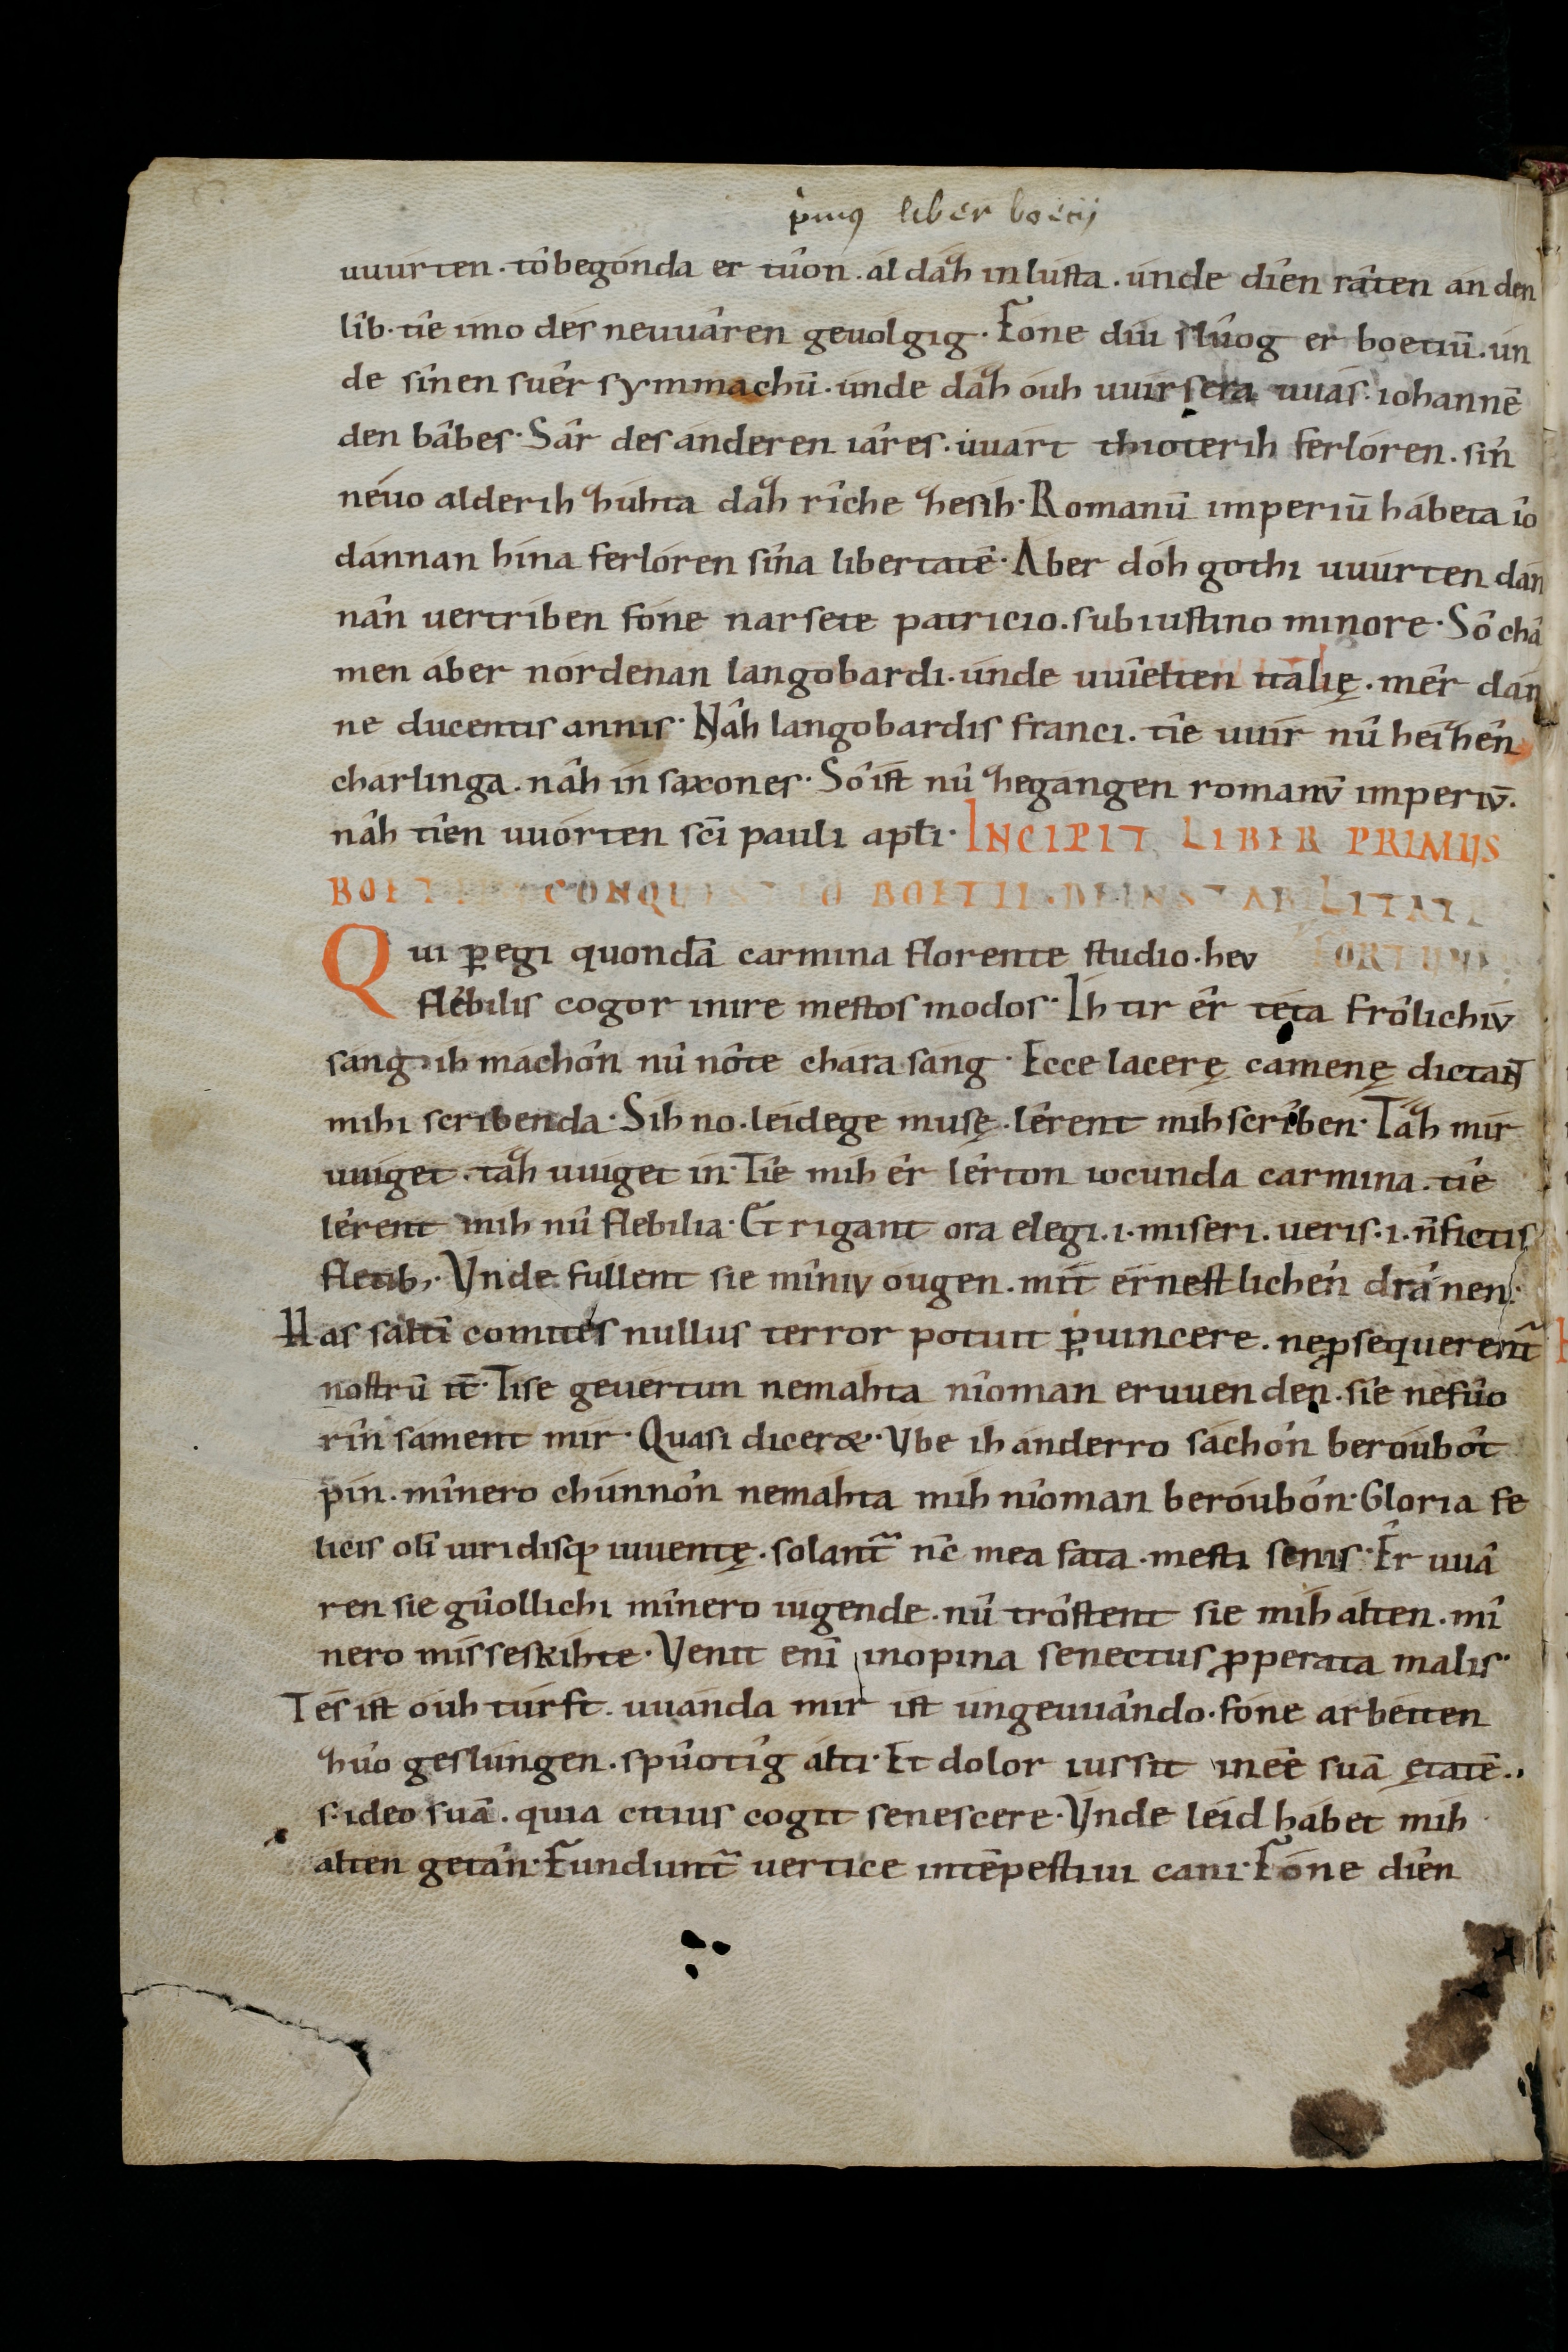 primus liber boecij
uuurten. tô begónda er tûon. al dáz in lusta. únde dîen râten an den
lîb. tîe imo des neuuâren geuolgîg. Fóne díu slûog er boetiū. ún
de sînen suêr symmachū. únde dáz óuh uuírsera uuás. iohannē
den bâbes. Sâr des ánderen iâres. uuárt thioterih ferlóren. sîn
néuo alderih zúhta dáz rîche ze síh. Romanū imperiū hábeta îo
dánnan hína ferlóren sîna libertatē. Aber dóh gothi uuúrten dán
nân vertríben fóne narsete patricio. sub iustino minore. Sô châ
men áber nórdenan langobardi. únde uuîelten italię. mêr dán
ne ducentis annis. Nâh langobardis franci. tîe uuír nû héizên
charlinga. nâh ín saxones. Sô íst nû zegángen romanū imperiū.
nâh tîen uuórten scī pauli apłi. INCIPIT LIBER PRIMUS
BOETII. CONQUESTIO BOETII. DE INSTABILITATE
Qui ꝑegi quondā carmina florente studio. heu FORTUNE
flébilis cogor inire mestos modos. Ih tír êr téta frôlichiu
sáng. íh máchôn nû nôte chárasáng. Ecce lacerę camenę dictaNT
mihi scribenda. Síh no. léidege musę. lêrent míh scrîben. Táz mír
uuíget. táz uuíget ín. Tîe míh êr lêrton iocunda carmina. tîe
lêrent míh nû flebilia. Et rigant ora elegi. i. miseri. ueris. i. ñ fictis
fletib;. Vnde fúllent sie mîniu óugen. mít érnestlichên drânen.
Has saltī comites nullus terror potuit ꝑuincere. ne ꝓsequerent̃
nostrū it̄. Tíse geuértun nemáhta nîoman eruuénden. sie nefûo
rîn sáment mír. Quasi diceret. Vbe íh ánderro sáchôn beróubôt
pín. mînero chúnnôn nemáhta míh nîoman beróubôn. Gloria fe
licis olī uiridisq; iuuentę. solant̃ nc̄ mea fata. mesti senis. Êr uuâ
ren sie gûollichi mînero iúgende. nû trôstent sie míh álten. mî
nero misseskíhte. Venit enī inopina senectus ꝓperata malis.
Tés íst óuh túrft. uuánda mír íst úngeuuándo. fóne árbeiten
zûo geslúngen. spûotîg álti. Et dolor iussit inēē suā ętatē..
s. ideo suā. quia citius cogit senescere. Vnde léid hábet míh
álten getân. Fundunt̃ uertice intēpestiui cani. Fóne dîen